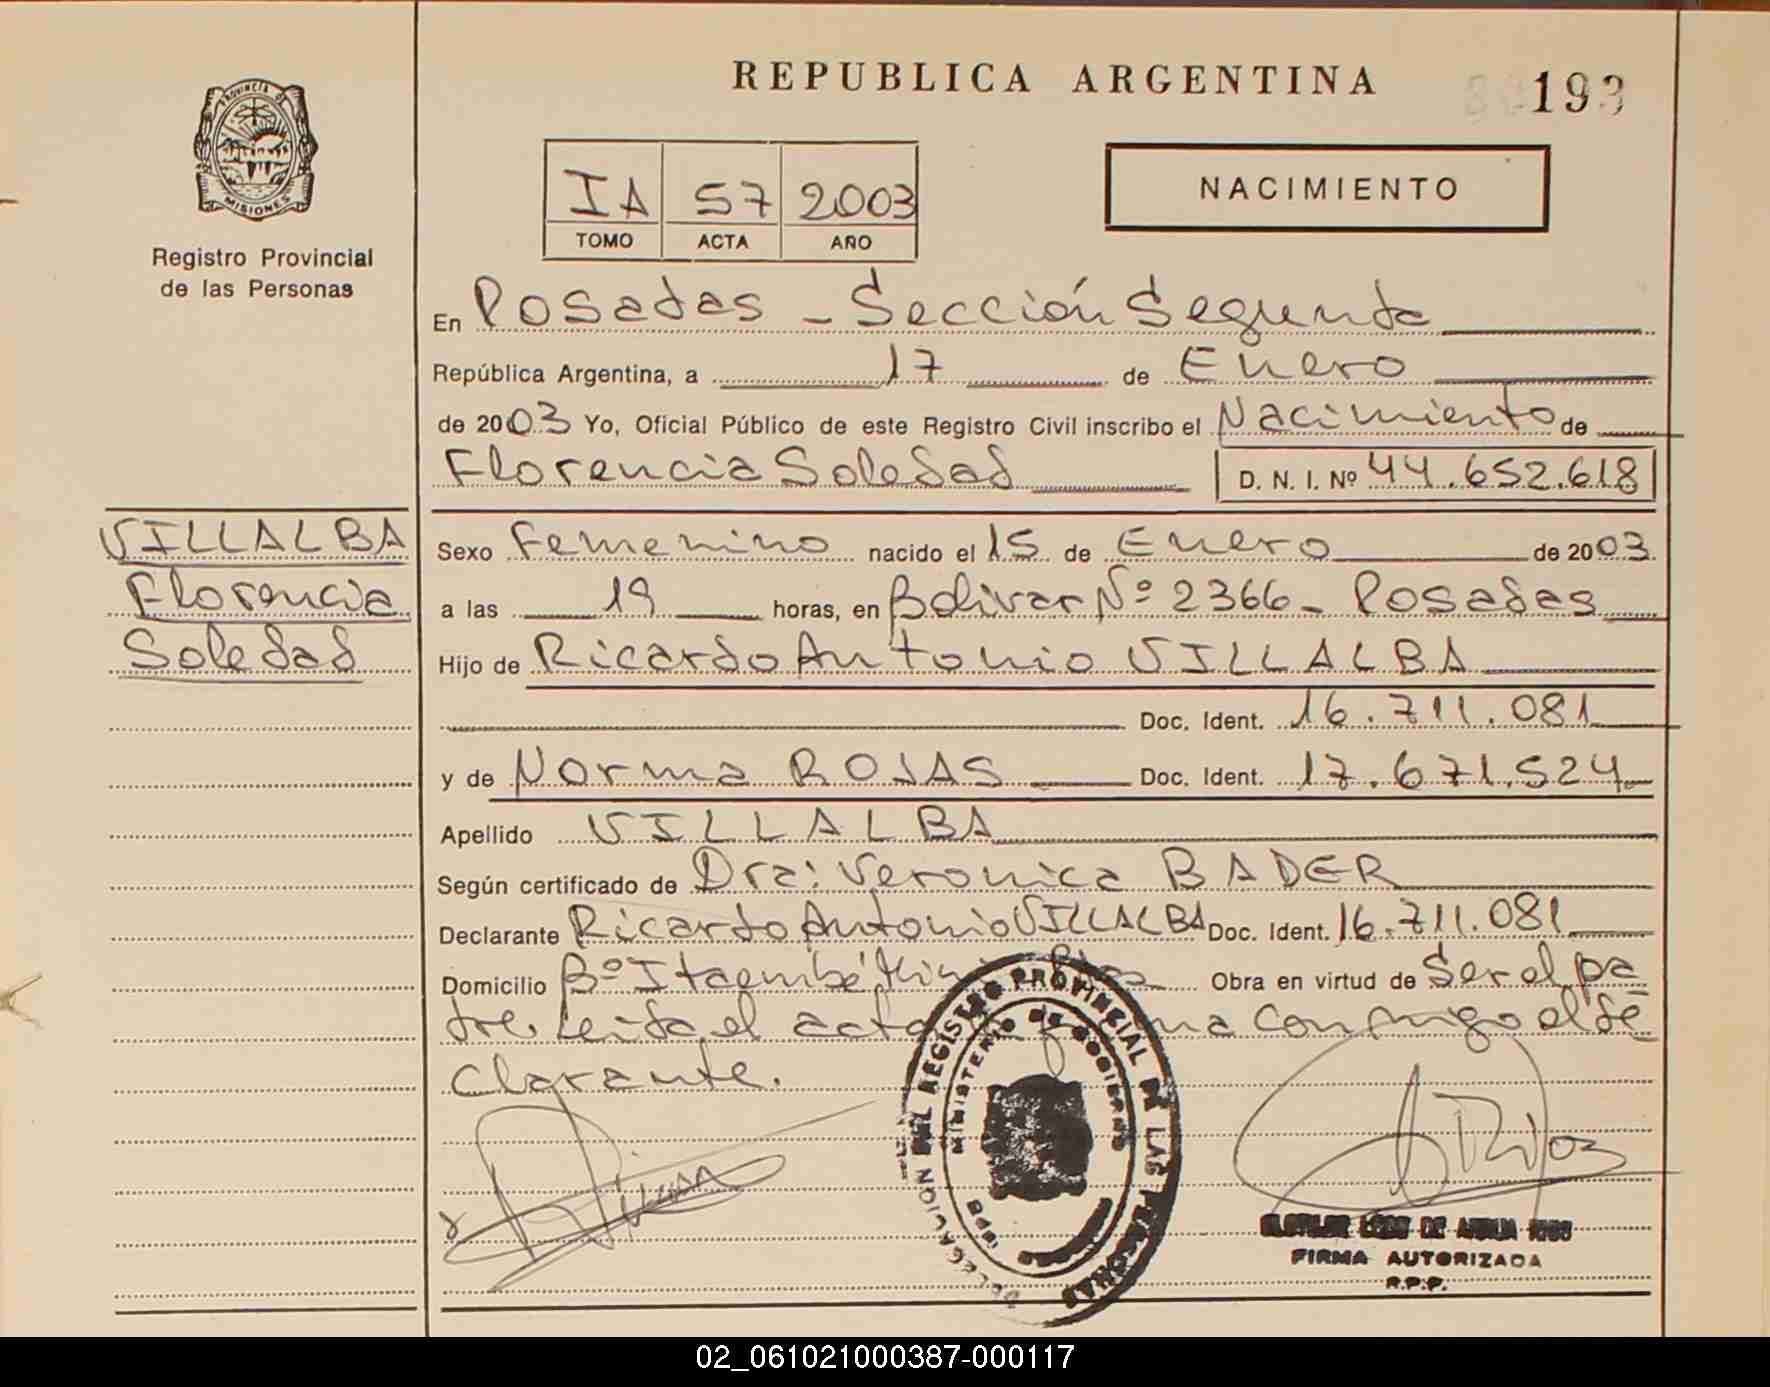 REPUBLICA ARGENTINA
193
PROVINCIA DE
MISIONES
Registro Provincial
de las Personas
IA 57 2003
TOMO ACTA AÑO
NACIMIENTO
En Posadas - Sección Segunda
República Argentina, a 17 de Enero
de 2003 Yo, Oficial Público de este Registro Civil inscribo el Nacimiento de
Florencia Soledad D. N. I. Nº 44.652.618
VILLALBA
Florencia
Soledad
Sexo Femenino nacido el 15 de Enero de 2003.
a las 19 horas, en Bolivar Nº 2366 - Posadas
Hijo de Ricardo Antonio VILLALBA
Doc. Ident. 16.711.081
y de Norma ROJAS Doc. Ident. 17.671.524
Apellido VILLALBA
Según certificado de Dra: Veronica BADER
Declarante Ricardo Antonio VILLALBA Doc. Ident. 16.711.081
Domicilio Bº Itaembé Mini Obra en virtud de Ser el pa
dre. Leida el acta firma conmigo el de
clarante.
DELEGACION DEL REGISTRO PROVINCIAL DE LAS PERSONAS
MINISTERIO DE GOBIERNO
A Rios
FIRMA AUTORIZADA
R.P.P.
02_061021000387-000117